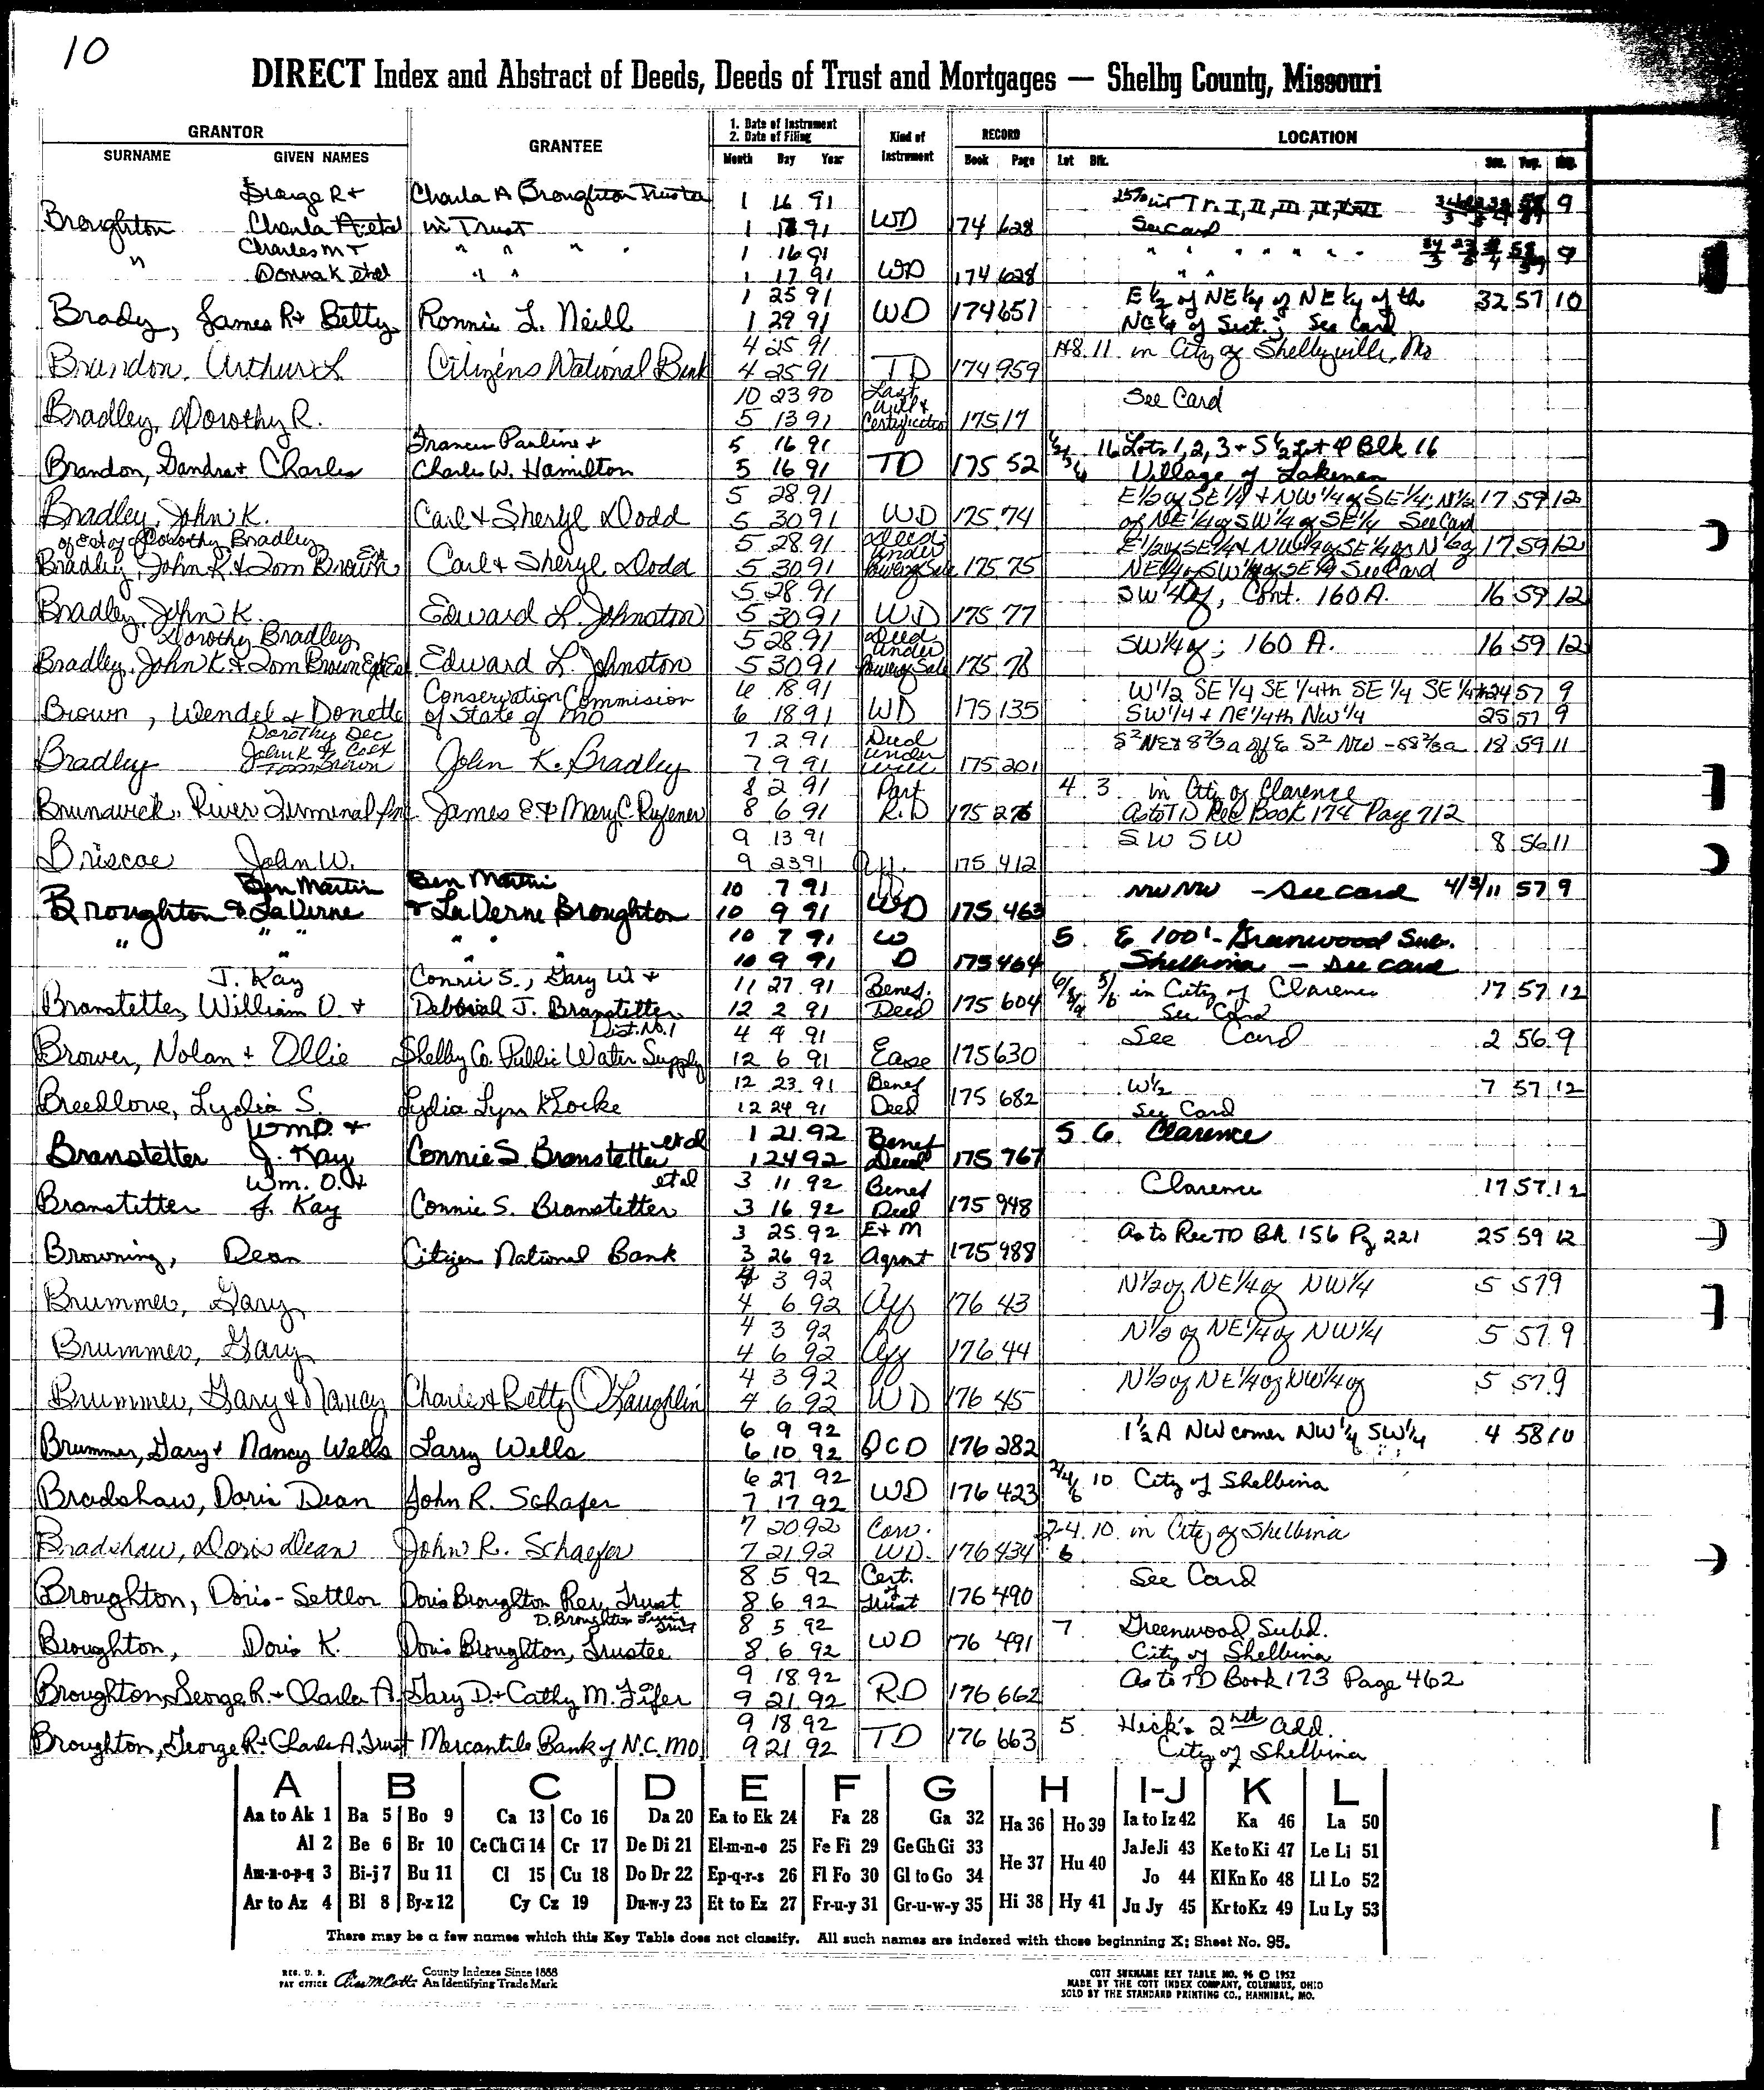 10
DIRECT Index and Abstract of Deeds, Deeds of Trust and Mortgages — Shelby County, Missouri
GRANTOR GRANTEE 1. Date of Instrument 2. Date of Filing Kind of Instrument RECORD LOCATION
SURNAME GIVEN NAMES Month Day Year Book Page Lot Blk. Sec. Twp. Rng.
George R + Charla A Broughton Trustee 1 16 91 25% in Tr. I, II, III
Broughton Charla A etal in Trust 1 17 91 WD 174 628 See Card 9
Charles M + " " " " 1 16 91
" Donna K etal " " 1 17 91 WD 174 628 " " 9
1 25 91 E½ of NE¼ of NE¼ of the 32 57 10
Brady, James R + Betty Ronnie L. Neill 1 29 91 WD 174 651 NE¼ of Sect.; See Card
4 25 91 11 in City of Shelbyville, Mo
Brandon, Arthur L Citizens National Bank 4 25 91 TD 174 959
10 23 90 Last Will + See Card
Bradley, Dorothy R. 5 13 91 Certificates 175 17
Frances Pauline + 5 16 91 16 Lots 1, 2, 3 + S½ Lot 4 Blk 16
Brandon, Sandra + Charles Charles W. Hamilton 5 16 91 TD 175 52 Village of Lakenan
5 28 91 E1/2 of SE1/4 + NW1/4 of SE1/4; N1/2 17 59 12
Bradley, John K. Carl + Sheryl Dodd 5 30 91 WD 175 74 of NE1/4 of SW1/4 of SE1/4 See Card
of Est of Dorothy Bradley 5 28 91 Deed Under E1/2 of SE1/4 + NW1/4 of SE1/4 of N1/2 of 17 59 12
Bradley, John K. + Tom Brown Ex Carl + Sheryl Dodd 5 30 91 Power of Sale 175 75 NE1/4 of SW1/4 of SE1/4 See Card
5 28 91 SW1/4 of, Cont. 160 A. 16 59 12
Bradley, John K. Edward L. Johnston 5 30 91 WD 175 77
Dorothy Bradley 5 28 91 Deed Under SW1/4 of; 160 A. 16 59 12
Bradley, John K. + Tom Brown Edward L. Johnston 5 30 91 Power of Sale 175 78
Conservation Commision 6 18 91 W1/2 SE1/4 SE1/4th SE1/4 SE1/4th 24 57 9
Brown, Wendel + Donette of State of Mo 6 18 91 WD 175 135 SW1/4 + NE1/4th NW1/4 25 57 9
Dorothy Dec 7 2 91 Deed S² NE + 8⅔a off E S² NW - 88⅔a 18 59 11
Bradley John K. + Tom Brown John K. Bradley 7 9 91 under Will 175 201
8 2 91 Part 4 3 in City of Clarence
Brunswick River Terminal Inc James E. + Mary C. 8 6 91 R.D 175 276 As to TD Rec Book 174 Page 712
9 13 91 SW SW 8 56 11
Briscoe John W. 9 23 91 Aff. 175 412
Ben Martin Ben Martin 10 7 91 NW NW - See card 4/3/11 57 9
Broughton + LaVerne + LaVerne Broughton 10 9 91 WD 175 463
" " " " " 10 7 91 W 5 E 100'- Greenwood Sub.
" " 10 9 91 D 175 464 Shelbina - See card
J. Kay Connie S., Gary W + 11 27 91 Benef. in City of Clarence 17 57 12
Branstetter, William O. + Deborah J. Branstetter 12 2 91 Deed 175 604 See Card
Dist. No. 1 4 4 91 See Card 2 56 9
Brower, Nolan + Ollie Shelby Co. Public Water Supply 12 6 91 Ease 175 630
12 23 91 Benef W½ 7 57 12
Breedlove, Lydia S. Lydia Lynn Klocke 12 24 91 Deed 175 682 See Card
Wm O. + 1 21 92 Benef 5 6 Clarence
Branstetter J. Kay Connie S. Branstetter et al 1 24 92 Deed 175 767
Wm. O. + et al 3 11 92 Benef Clarence 17 57 12
Branstetter J. Kay Connie S. Branstetter 3 16 92 Deed 175 948
3 25 92 E + M As to Rec TD BK 156 Pg 221 25 59 12
Browning, Dean Citizen National Bank 3 26 92 Agrmt 175 988
4 3 92 N1/2 of NE1/4 of NW1/4 5 57 9
Brummer, Gary 4 6 92 Aff 176 43
4 3 92 N1/2 of NE1/4 of NW1/4 5 57 9
Brummer, Gary 4 6 92 Aff 176 44
4 3 92 N1/2 of NE1/4 of NW1/4 of 5 57 9
Brummer, Gary + Nancy Charles + Betty O'Laughlin 4 6 92 WD 176 45
6 9 92 1½ A NW corner NW¼ SW¼ 4 58 10
Brummer, Gary + Nancy Wells Larry Wells 6 10 92 QCD 176 282
6 27 92 2/4/6 10 City of Shelbina
Bradshaw, Doris Dean John R. Schafer 7 17 92 WD 176 423
7 20 92 Corr. 2-4 10 in City of Shelbina
Bradshaw, Doris Dean John R. Schaefer 7 21 92 WD. 176 434 6
8 5 92 Cert. of See Card
Broughton, Doris - Settlor Doris Broughton Rev. Trust 8 6 92 Trust 176 490
D. Broughton Living Trust 8 5 92 7 Greenwood Subd.
Broughton, Doris K. Doris Broughton, Trustee 8 6 92 WD 176 491 City of Shelbina
9 18 92 As to TD Book 173 Page 462
Broughton, George R. + Charla A. Gary D. + Cathy M. Fifer 9 21 92 RD 176 662
9 18 92 5 Heck's 2nd Add.
Broughton, George R. + Charla A. Trust Mercantile Bank of N.C. MO 9 21 92 TD 176 663 City of Shelbina
A B C D E F G H I-J K L
Aa to Ak 1 Ba 5 Bo 9 Ca 13 Co 16 Da 20 Ea to Ek 24 Fa 28 Ga 32 Ha 36 Ho 39 Ia to Iz 42 Ka 46 La 50
Al 2 Be 6 Br 10 Ce Ch Ci 14 Cr 17 De Di 21 El-m-n-o 25 Fe Fi 29 Ge Gh Gi 33 He 37 Hu 40 Ja Je Ji 43 Ke to Ki 47 Le Li 51
Am-n-o-p-q 3 Bi-j 7 Bu 11 Cl 15 Cu 18 Do Dr 22 Ep-q-r-s 26 Fl Fo 30 Gl to Go 34 Jo 44 Kl Kn Ko 48 Ll Lo 52
Ar to Az 4 Bl 8 By-z 12 Cy Cz 19 Du-w-y 23 Et to Ez 27 Fr-u-y 31 Gr-u-w-y 35 Hi 38 Hy 41 Ju Jy 45 Kr to Kz 49 Lu Ly 53
There may be a few names which this Key Table does not classify. All such names are indexed with those beginning X; Sheet No. 95.
REG. U. S. PAT OFFICE County Indexes Since 1888 An Identifying Trade Mark
COTT SURNAME KEY TABLE NO. 96 © 1952
MADE BY THE COTT INDEX COMPANY, COLUMBUS, OHIO
SOLD BY THE STANDARD PRINTING CO., HANNIBAL, MO.